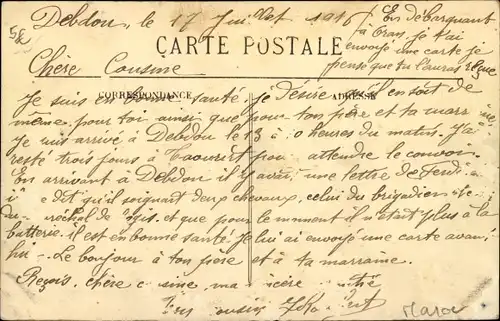 Debdou, le 17 Juillet 1916
En débarquant
à Oran je t'ai
CARTE POSTALE
envoyé une carte je
pense que tu l'auras reçue
Chère Cousine
CORRESPONDANCE
ADRESSE
Je suis en bonne santé je désire qu'il en soit de
même pour toi ainsi que pour ton père et ta marraine
Je suis arrivé à Debdou le 13 à 10 heures du matin. J'ai
resté trois jours à Taourirt pour attendre le convoi.
En arrivant à Debdou il y avait une lettre de
dit qu'il soignait deux chevaux, celui du brigadier
et que pour le moment il n'était plus à la
batterie il est en bonne santé. Je lui ai envoyé une carte avant
hier. Le bonjour à ton père et à ta marraine.
Reçois, chère cousine, ma sincère amitié
Ton cousin
Maroc